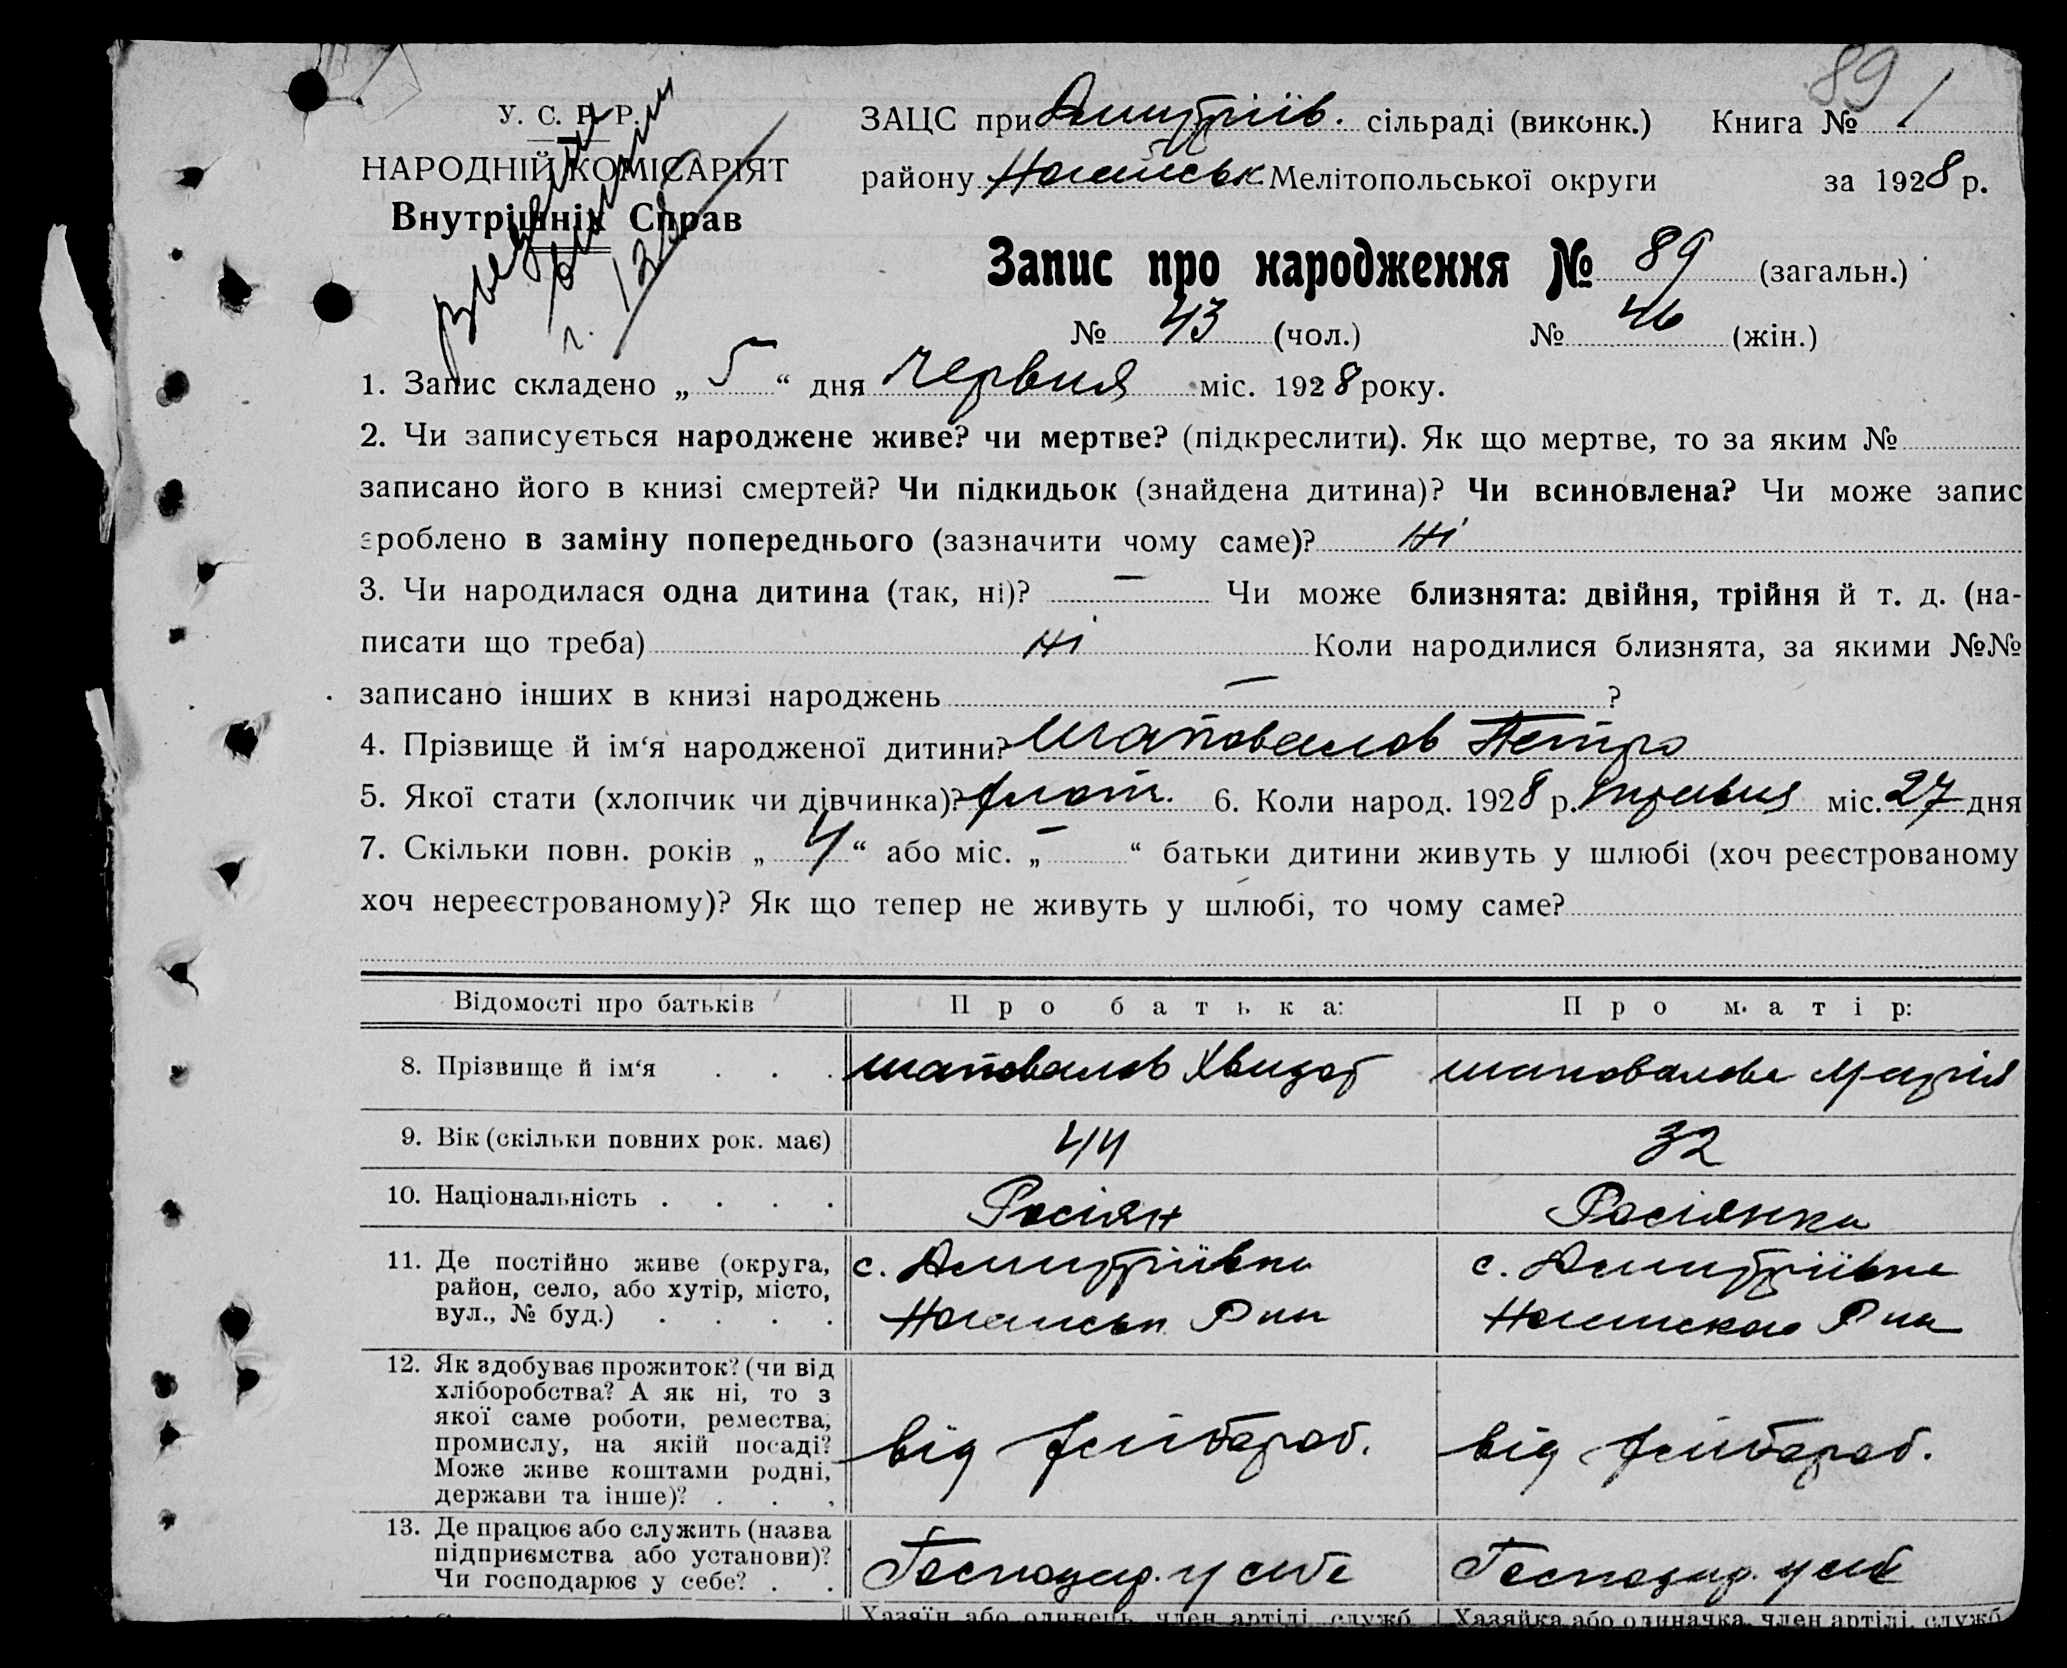 89
У. С. Р. Р.
НАРОДНІЙ КОМІСАРІЯТ
Внутрішніх Справ
ЗАЦС при Дмитріїв. сільраді (виконк.) Книга № 1
району Ногайськ Мелітопольської округи за 1928 р.
Запис про народження № 89 (загальн.)
№ 43 (чол.) № 46 (жін.)
1. Запис складено „ 5 “ дня Червня міс. 1928 року.
2. Чи записується народжене живе? чи мертве? (підкреслити). Як що мертве, то за яким №
записано його в книзі смертей? Чи підкидьок (знайдена дитина)? Чи всиновлена? Чи може запис
зроблено в заміну попереднього (зазначити чому саме)? Ні
3. Чи народилася одна дитина (так, ні)? — Чи може близнята: двійня, трійня й т. д. (на-
писати що треба) Ні Коли народилися близнята, за якими №№
записано інших в книзі народжень — ?
4. Прізвище й ім‘я народженої дитини? Шаповалов Петро
5. Якої стати (хлопчик чи дівчинка)? хлоп. 6. Коли народ. 1928 р. травня міс. 27 дня
7. Скільки повн. років „ 4 “ або міс. „ — “ батьки дитини живуть у шлюбі (хоч реєстрованому
хоч нереєстрованому)? Як що тепер не живуть у шлюбі, то чому саме?
Відомості про батьків Про батька: Про матір:
8. Прізвище й ім‘я . . . Шаповалов Хведор Шаповалова Марія
9. Вік (скільки повних рок. має) 44 32
10. Національність . . . . Росіян Росіянка
11. Де постійно живе (округа,
район, село, або хутір, місто,
вул., № буд.) . . . .
с. Дмитріївка
Ногайськ Р-ну
с. Дмитріївка
Ногайского Р-на
12. Як здобуває прожиток? (чи від
хліборобства? А як ні, то з
якої саме роботи, ремества,
промислу, на якій посаді?
Може живе коштами родні,
держави та інше)? . . .
від хлібороб.
від хлібороб.
13. Де працює або служить (назва
підприємства або установи)?
Чи господарює у себе? . .
Господар. у себе
Господар. у себе
Хазяїн або одинець, член артілі, служб. Хазяйка або одиначка, член артілі, служб.